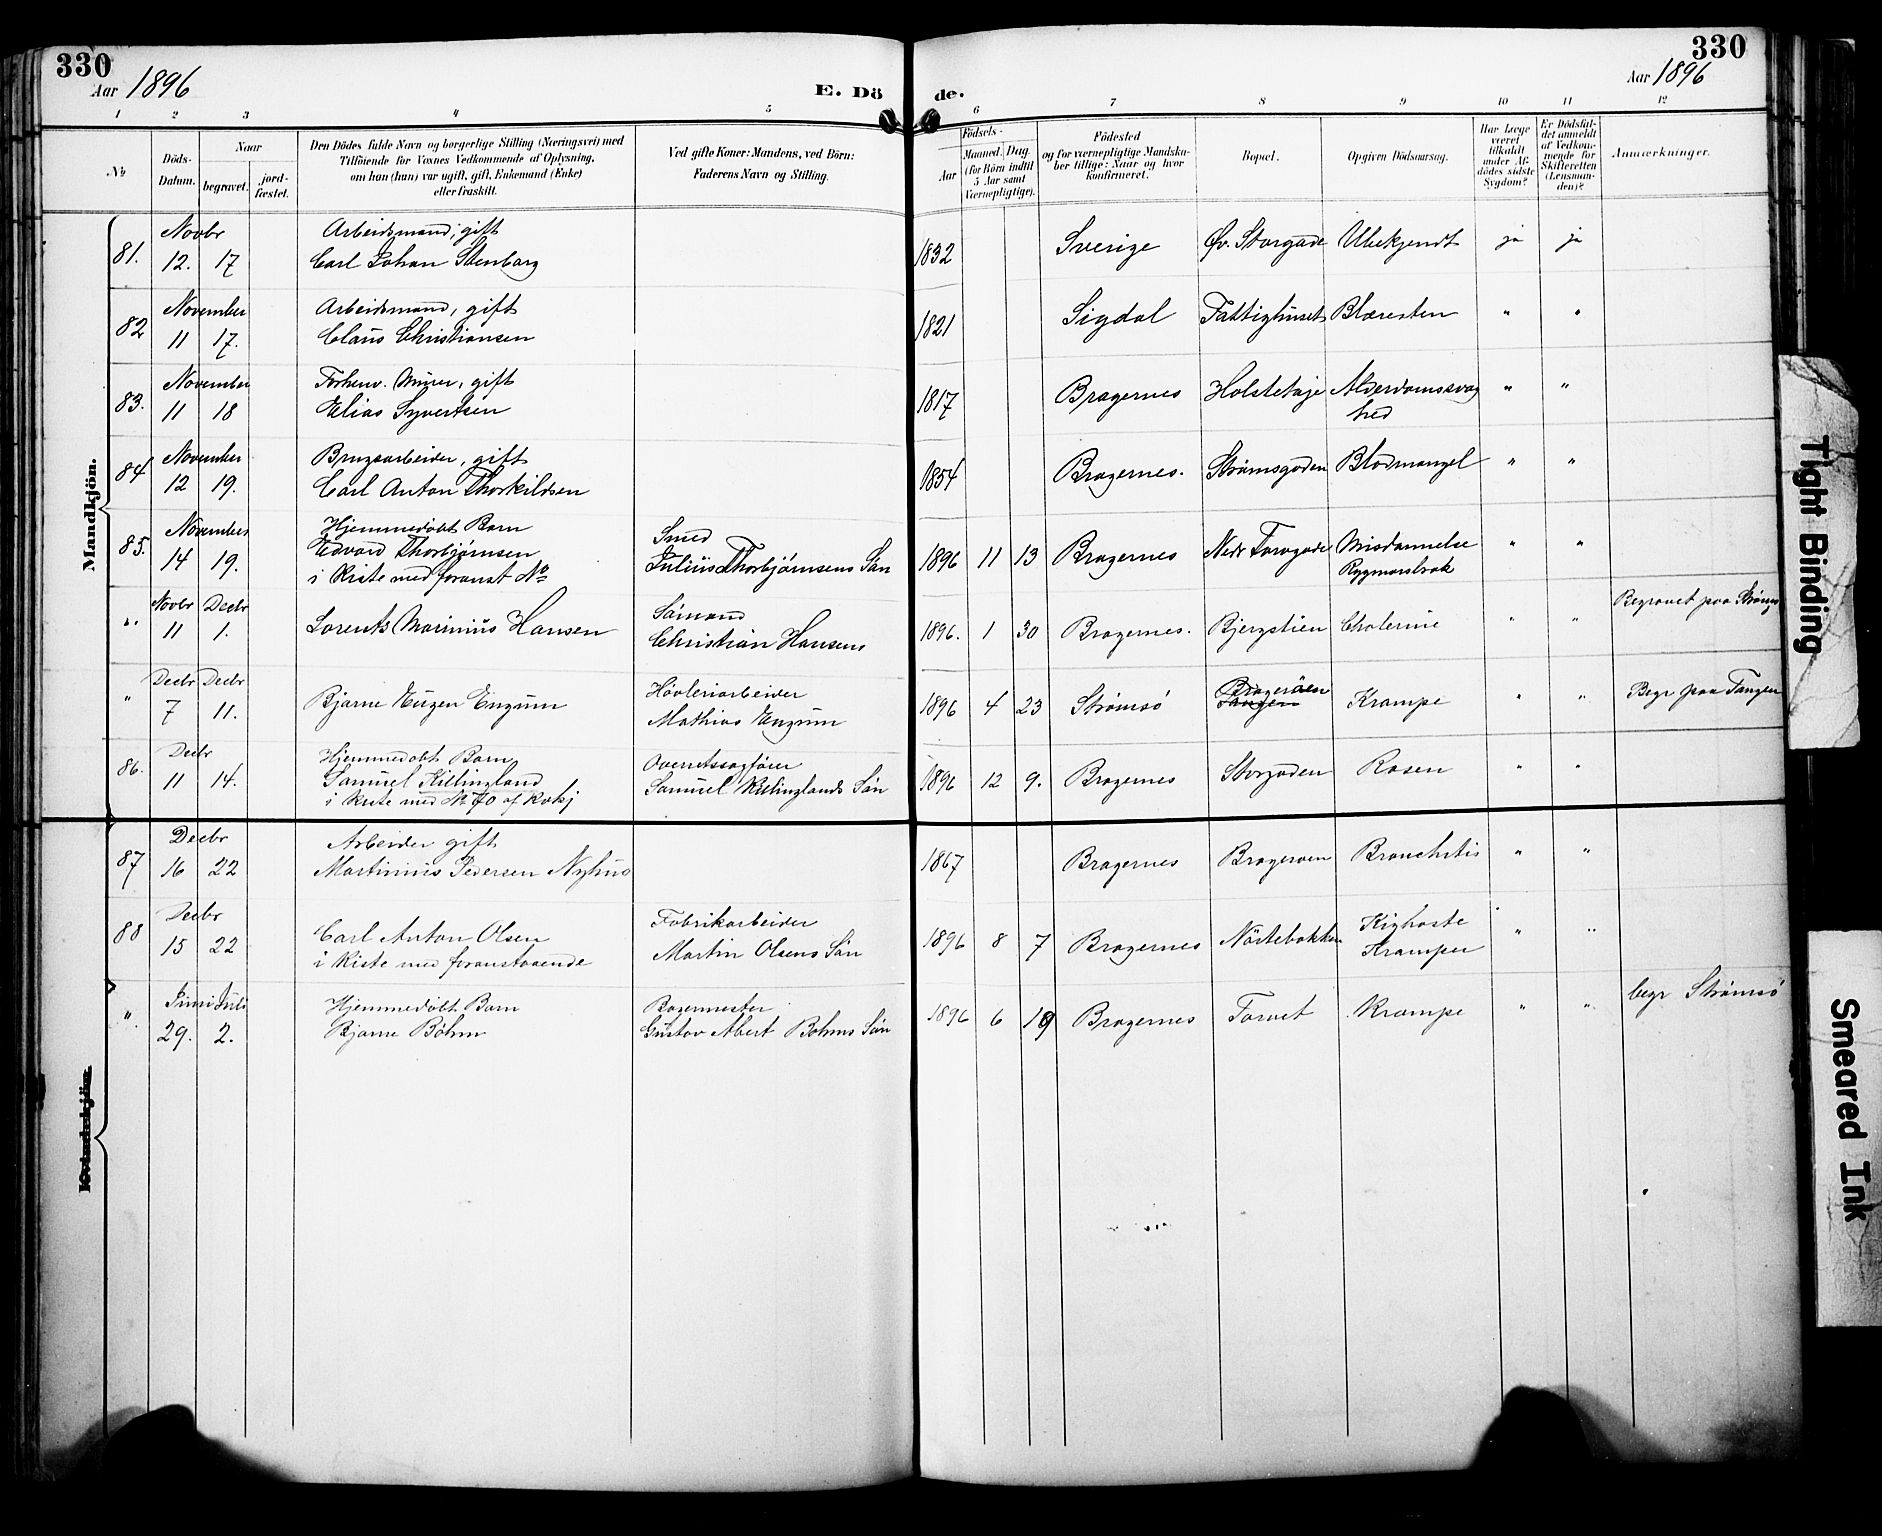 330
Aar 1896
E. Dö
de.
330
Aar 1896
1 2 3 4 5 6 7 8 9 10 11 12
№
Döds-
Datum.
Naar
begravet.
jord-
fæstet.
Den Dödes fulde Navn og borgerlige Stilling (Næringsvei) med
Tilföiende for Voxnes Vedkommende af Oplysning,
om han (hun) var ugift, gift, Enkemand (Enke)
eller fraskilt.
Ved gifte Koner: Mandens, ved Börn:
Faderens Navn og Stilling.
Födsels-
Aar
Maaned. Dag.
(for Börn indtil
5 Aar samt
Værnepligtige).
Födested
og for værnepligtige Mandska-
ber tillige: Naar og hvor
konfirmeret.
Bopæl.
Opgiven Dödsaarsag.
Har Læge
været
tilkaldt
under Af-
dödes sidste
Sygdom?
Er Dödsfal-
det anmeldt
af Vedkom-
mende for
Skifteretten
(Lensman-
den)?
Anmærkninger.
Mandkjön.
Novbr Arbeidsmand, gift
81. 12. 17 Carl Johan Stenborg 1832 Sverige Øv. Storgade Ubekjendt ja ja
November Arbeidsmand, gift
82 11 17. Claus Christiansen 1821 Sigdal Fattighuset Blæresten " "
November Forhenv. Murer, gift
83. 11 18 Elias Syvertsen 1817 Bragernes Alderdomssvag " "
hed
November Brugsarbeider, gift
84 12 19. Carl Anton Thorkildsen 1854 Bragernes. Strømsgaden Blodmangel " "
November Hjemmedøbt Barn Smed
85. 14 19. Edvard Thorbjørnsen Julius Thorbjørnsens Søn 1896 11 13 Bragernes Nedr Torvgade Misdannelse " "
i Kiste med foranst No Rygmarsbrok
Novbr Decbr Sømand Begravet paa Strømsø
" 11 1. Lorents Marinius Hansen Christian Hansens 1896. 1 30 Bragernes. Bjergstien Cholerine " "
Decbr Decbr Høvleriarbeider Bragerøen Begr paa Tangen
" 7 11. Bjarne Eugen Engum Mathias Engum 1896 4 23 Strømsø Tangen Krampe " "
Decbr Hjemmedøbt Barn Overretssagfører
86. 11 14. Samuel Killingland Samuel Killinglands Søn 1896 12 9. Bragernes Storgaden Rosen " "
i Kiste med № 70 af
Decbr Arbeider gift
87 16 22 Martinius Pedersen Nyhus 1867 Bragernes Bragerøen Bronchitis " "
Decbr Fabrikarbeider Kighoste
88 15 22 Carl Anton Olsen Martin Olsens Søn 1896 8 7 Bragernes Nørtebakken Kramper " "
i Kiste med foranstaaende
Juni Juli Hjemmedøbt Barn Bagermester begr Strømsø
" 29. 2. Bjarne Böhm Gustav Albert Bohms Søn 1896 6 19 Bragernes Torvet Krampe " "
Kvindekjön.
Tight Binding
Smeared Ink